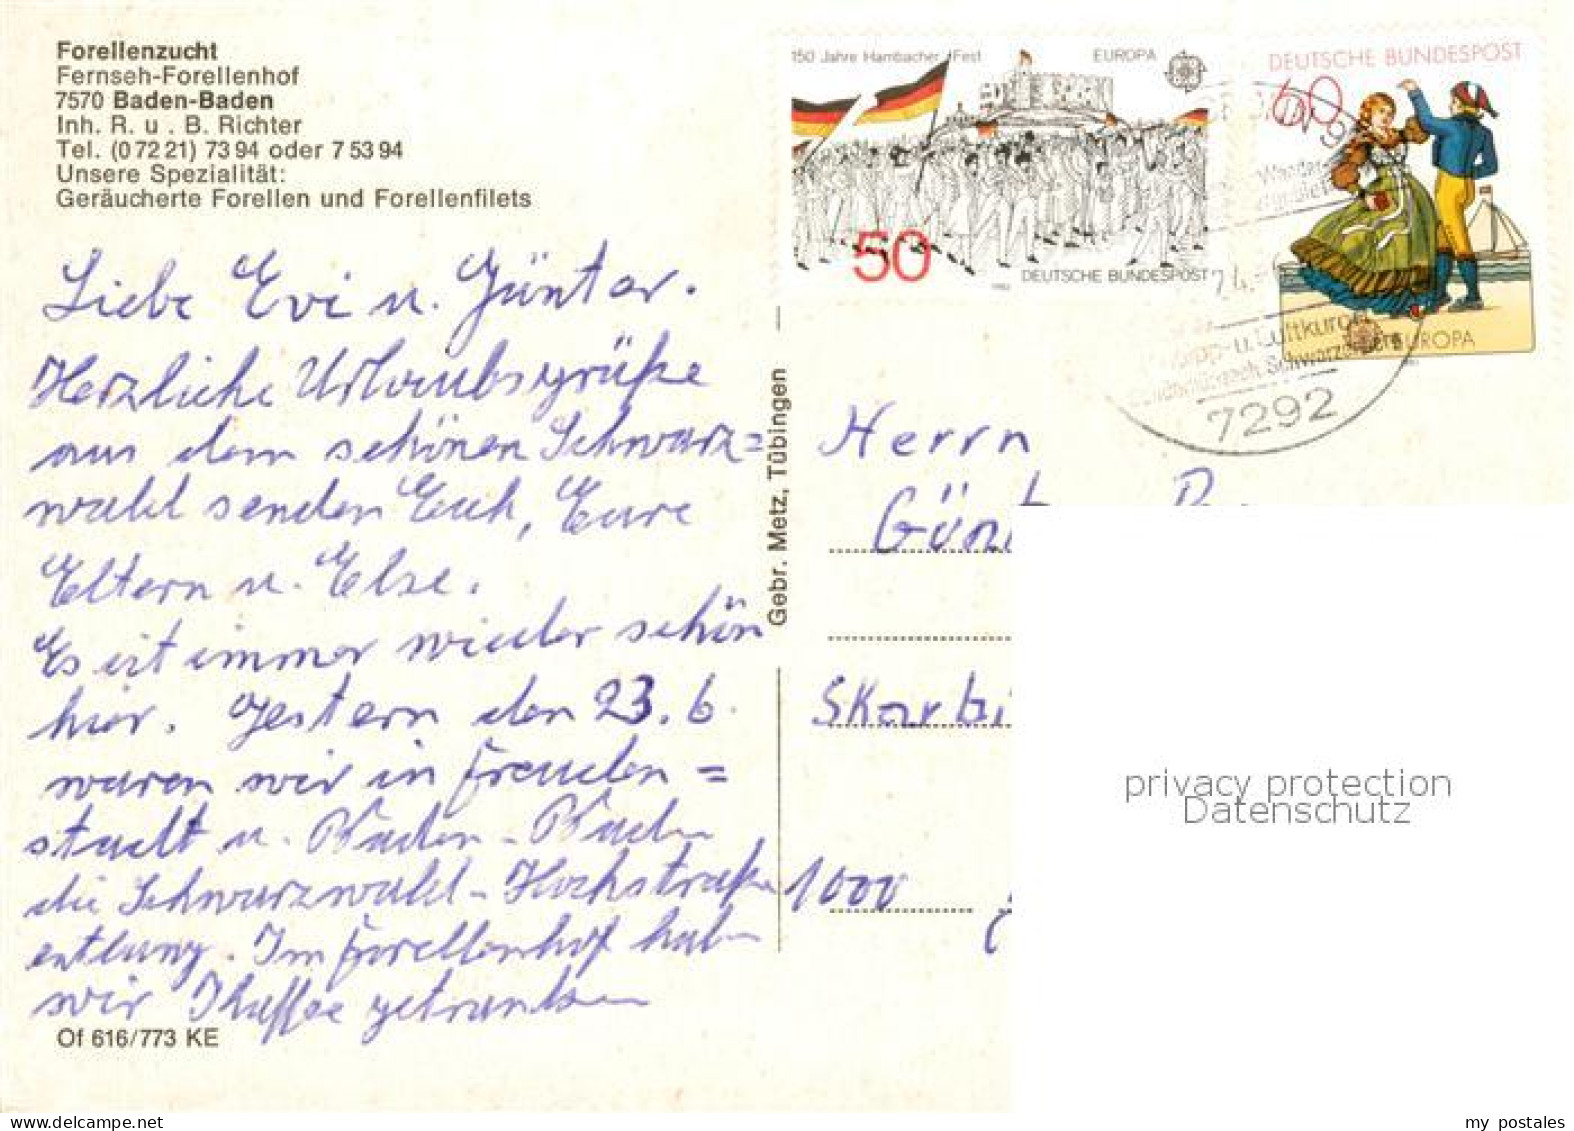 Forellenzucht
Fernseh-Forellenhof
7570 Baden-Baden
Inh. R. u . B. Richter
Tel. (0 72 21) 73 94 oder 7 53 94
Unsere Spezialität:
Geräucherte Forellen und Forellenfilets
Liebe Evi u. Günter.
Herzliche Urlaubsgrüße
aus dem schönen Schwarz=
wald senden Euch, Eure
Eltern u. Else.
Es ist immer wieder schön
hier. Gestern den 23.6.
waren wir in Freuden=
stadt u. Baden-Baden
die Schwarzwald-Hochstraße
entlang. Im Forellenhof haben
wir Kaffee getrunken
Of 616/773 KE
Gebr. Metz, Tübingen
150 Jahre Hambacher Fest
EUROPA
50
DEUTSCHE BUNDESPOST
1982
DEUTSCHE BUNDESPOST
60
EUROPA
24.
u. Luftkurort
Schwarzenberg
7292
Herrn
Günt
Skarbi
1000
privacy protection
Datenschutz
my postales